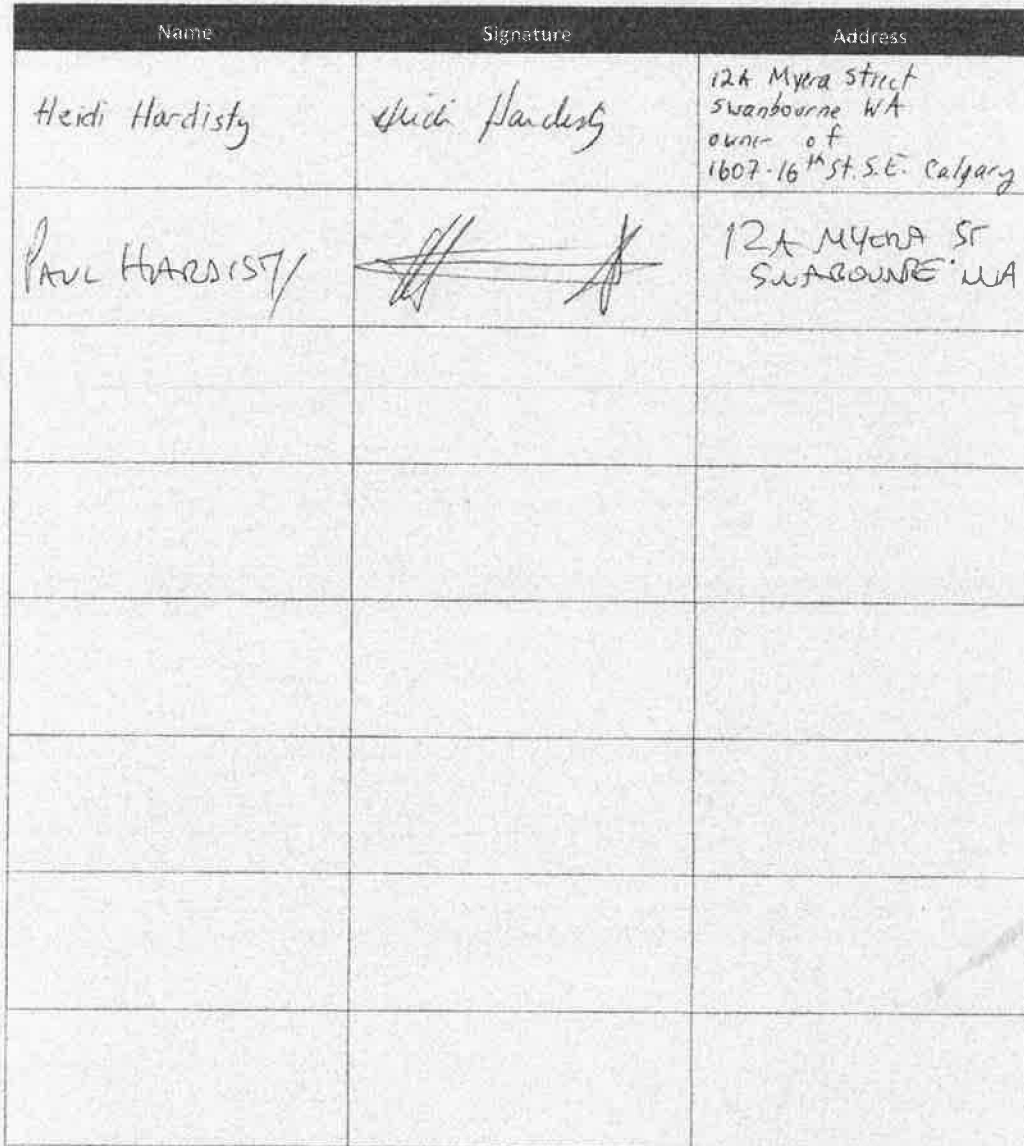 Name Signature Address
Heidi Hardisty
Heidi Hardisty
12A Myera Street
Swanbourne WA
owner of
1607-16th St. S.E. Calgary
PAUL HARDISTY
12A MYERA ST
SWABOUNRE WA